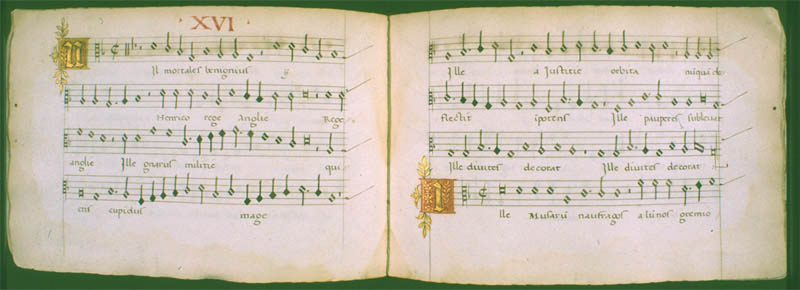 XVI
Nil mortales benignius
Henrico rege Anglie Rege
anglie Ille gnarus militie qui
etis cupidus mage
Ille a Iustitie orbita nusquā de
flectit ipotens Ille pauperes sublevat
Ille divites decorat Ille divites decorat
Ille Musarū naufragos alūnos gremio